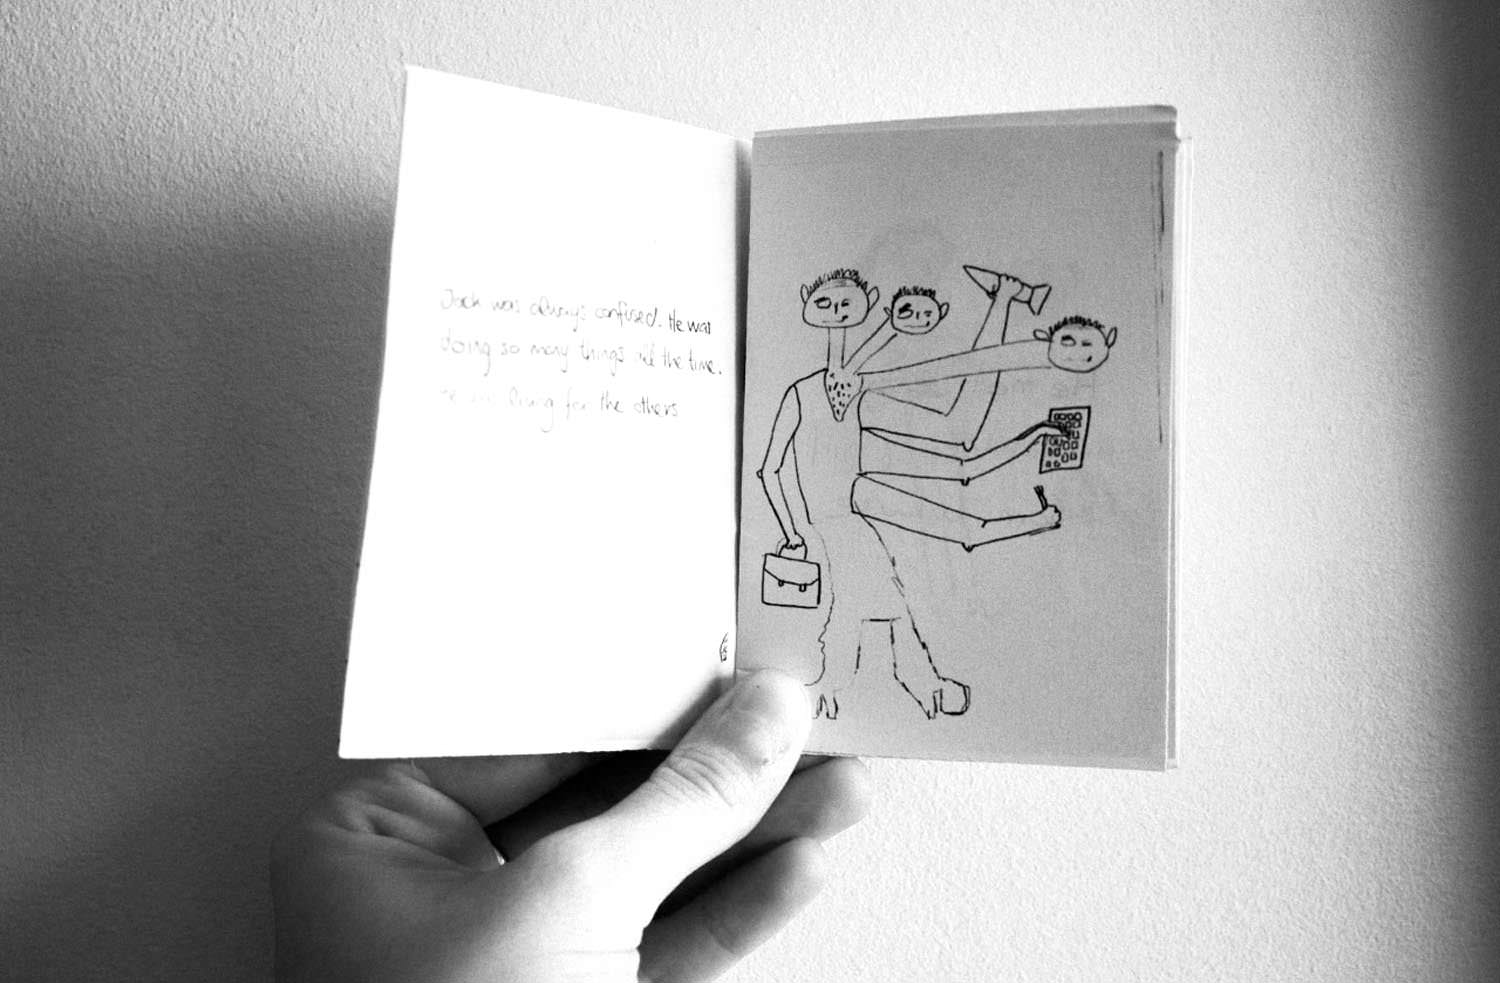 Jack was always confused. He was
doing so many things all the time.
living for the others